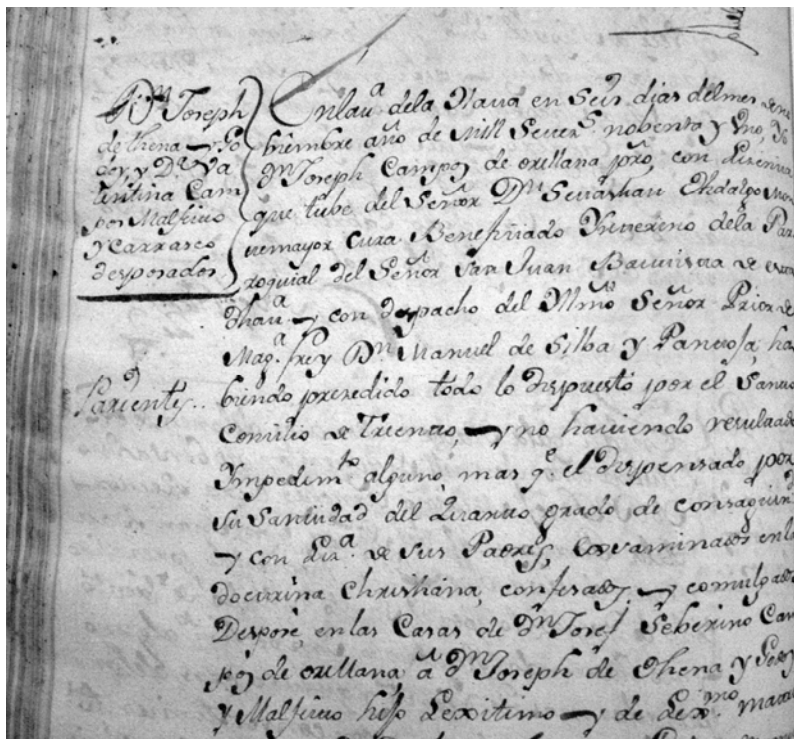 Dn Joseph
de Thena y Go
doy, y Da Va
lentina Cam
pos Malfeito
y Carrasco
desposados
Parientes
En la va dela Hava en Seis dias del mes de no
biembre año de mill Setecs nobenta y Uno, Yo
Dn Joseph Campos de orellana pro, con Licencia
que tube del Señor Dn Sevastian Hidalgo Mon
temayor Cura Beneficiado Ynterino dela Par
roquial del Señor San Juan Bauptista de esta
dha va y con despacho del Yllmo Señor Prior de
Maga frey Dn Manuel de Silba y Pantoja, ha
biendo precedido todo lo dispuesto por el Santo
Concilio de Trento, y no haviendo resultado
Ympedimto alguno, mas qe el dispensado por
su Santidad del Quarto grado de consaguind
y con Liza de sus Padres, exsaminados en la
doctrina Christiana, confesados, y comulgados
Desposé, en las Casas de Dn Josef Seberino Cam
pos de orellana, á Dn Joseph de thena y Godoy
y Malfeito hijo Lexitimo y de Lexmo